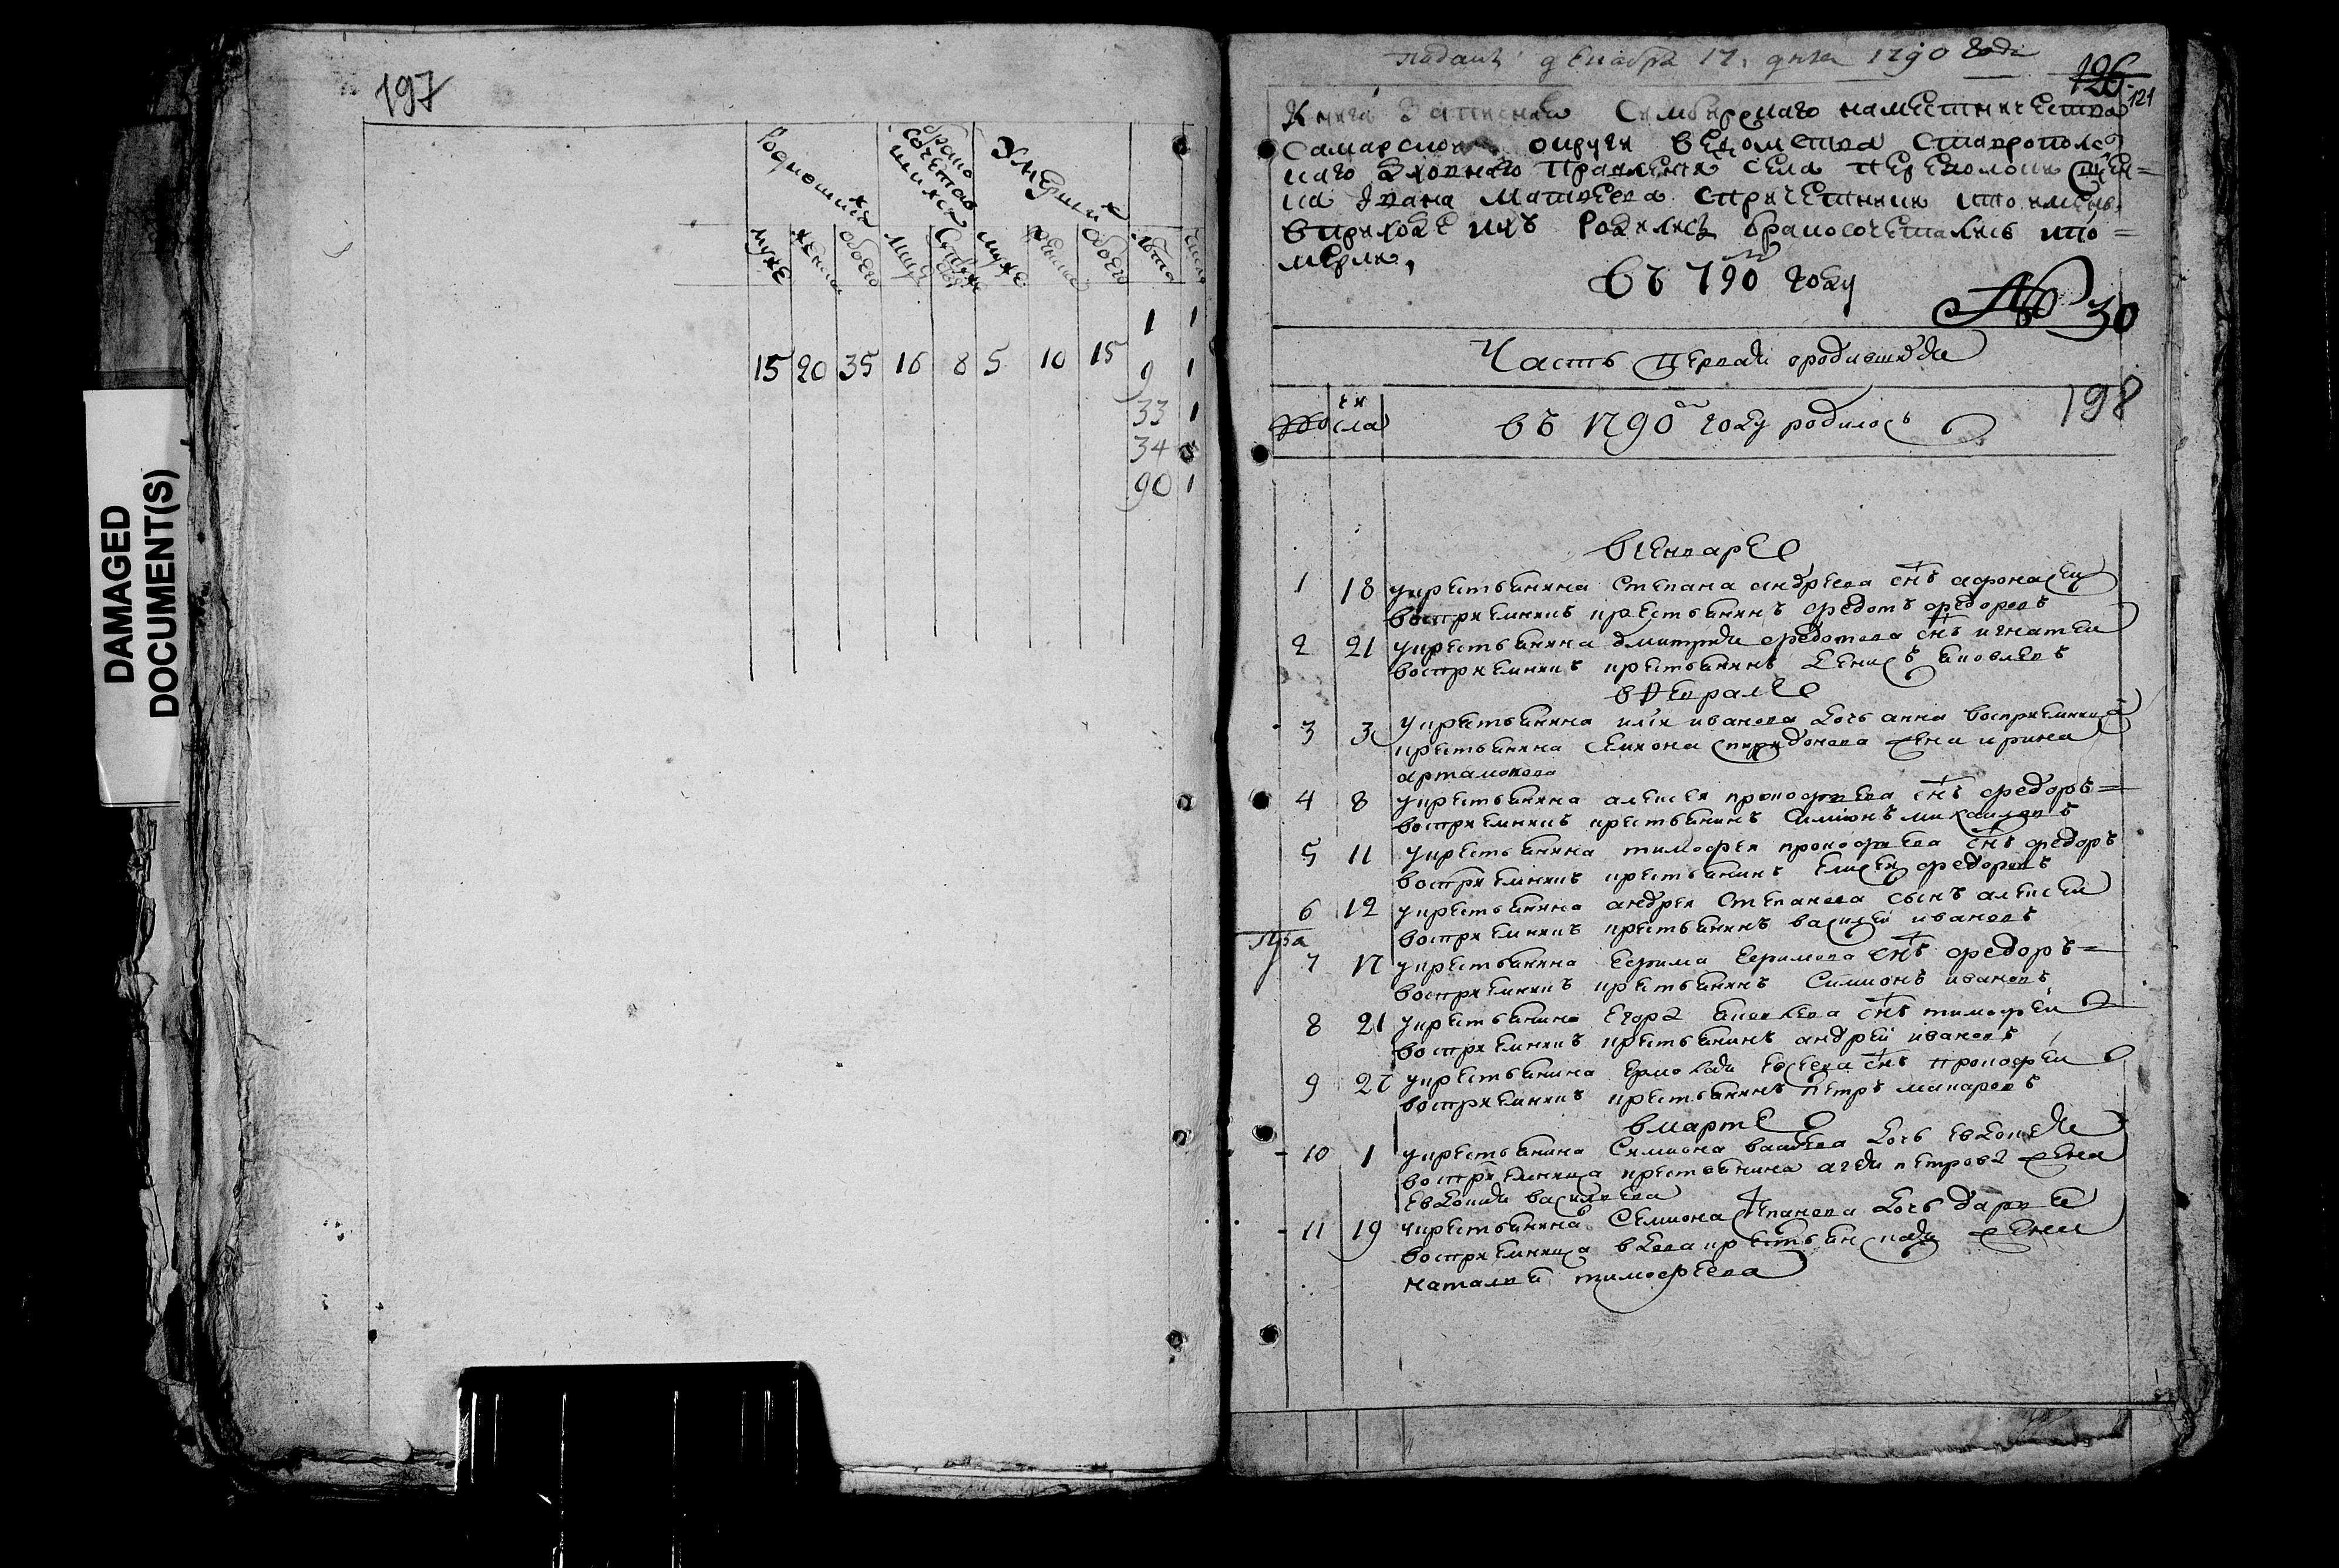 197
DAMAGED
DOCUMENT(S)
Родившихся
брако сочетав шихся
Умерших
муже женска обоего лицъ муже женска обоего лѣта число
1 1
15 20 35 16 8 5 10 15 9 1
33 1
34
90 1
подана декабря 17 дня 1790 года
126
121
Книга записная Симбирскаго наместничества
Самарской округи ведомства Ставрополс
каго духовнаго правления села Переволоки свщен=
ка Ивана Матвеева спричетники кто имены
вприходе ихъ родилисъ бракосочетались ипо=
мерли,
въ 790 году
№ 30
Часть первая ородившихся
198
№ числа въ 1790 году родилось
вгенваре
1 18 укрестьянина степана андреева снъ афонасеи
восприемникъ крестьянинъ федотъ федоровъ
2 21 укрестьянина дмитрия федотова снъ игнатеи
восприемникъ крестьянинъ денисъ яковлевъ
вфеврале
3 3 укрестьянина илiи иванова дочь анна восприемница
крестьянина симиона спиридонова жена ирина
артамонова
4 8 укрестьянина алексея прокофьева снъ федоръ=
восприемникъ крестьянинъ симионъ михаиловъ
5 11 укрестьянина тимофея прокофьева снъ федоръ
восприемникъ крестьянинъ елисеи федоровъ
6 12 укрестьянина андрея степанова сынъ алексеи
восприемникъ крестьянинъ василеи ивановъ
7 17 укрестьянина ефима ефимова снъ федоръ=
восприемникъ крестьянинъ симионъ ивановъ
8 21 укрестьянина егора яковлева снъ тимофеи
восприемникъ крестьянинъ андреи ивановъ
9 27 укрестьянина ермолая евсеева снъ прокофеи
восприемникъ крестьянинъ петръ макаровъ
вмарте
10 1 укрестьянина симиона дочь евдокия
восприемница крестьянина петрова жена
евдокия васильева
11 19 укрестьянина семиона степанова дочь дарья
восприемница вдова крестьянская жена
наталья тимофеева